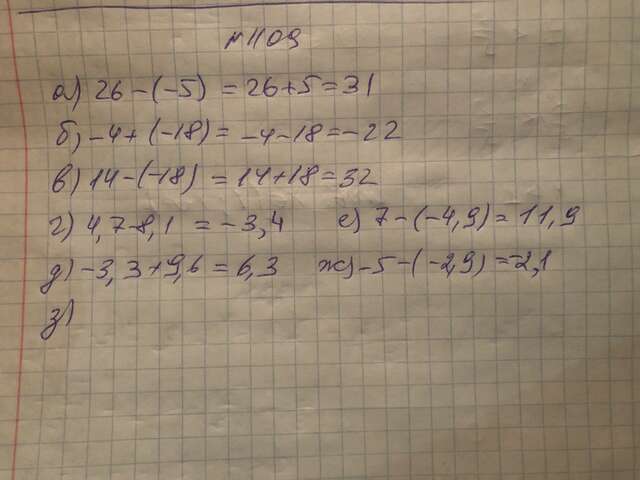 №1109
а) 26-(-5) = 26+5=31
б) -4+(-18)= -4-18=-22
в) 14-(-18) = 14+18=32
г) 4,7-8,1 = -3,4 е) 7-(-4,9)= 11,9
д) -3,3+9,6 = 6,3 ж) -5-(-2,9) =-2,1
з)